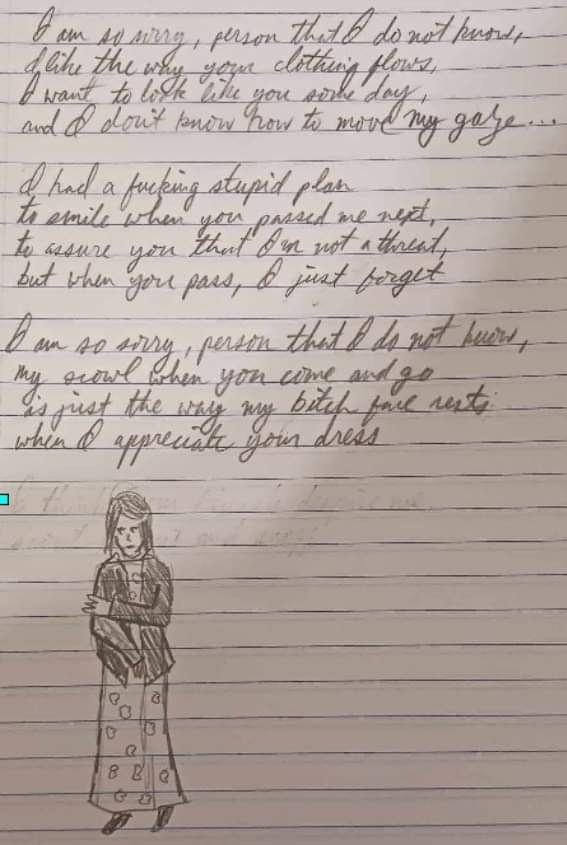 I am so sorry, person that I do not know,
I like the way your clothing flows,
I want to look like you some day,
and I don't know how to move my gaze...
I had a fucking stupid plan
to smile when you passed me next,
to assure you that I'm not a threat,
but when you pass, I just forget
I am so sorry, person that I do not know,
my scowl when you come and go
is just the way my bitch face rests
when I appreciate your dress
I think
me
and